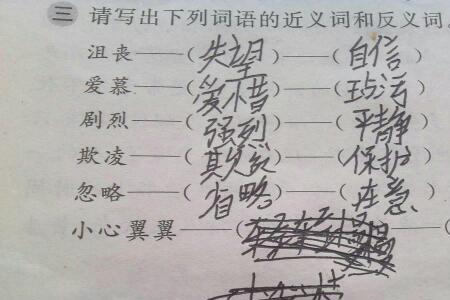 三 请写出下列词语的近义词和反义词。
沮丧——(失望)——(自信)
爱慕——(爱惜)——(玷污)
剧烈——(强烈)——(平静)
欺凌——(欺负)——(保护)
忽略——(省略)——(在意)
小心翼翼——(